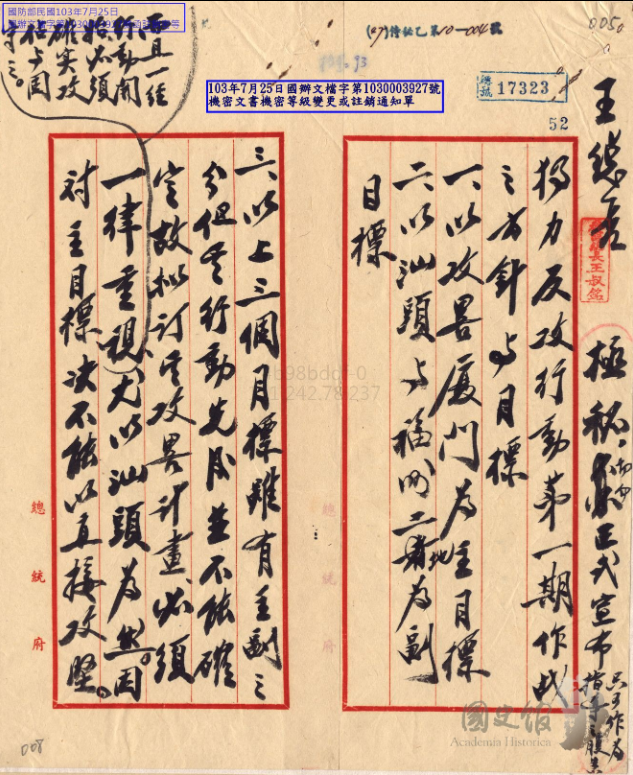 005
(47)侍秘乙第10-004號
總號 17323
52
103年7月25日國辦文檔字第1030003927號
機密文書機密等級變更或註銷通知單
國防部民國103年7月25日
王總長
極秘
正式宣布
只可作為
獨力反攻行動第一期作戰
之方針與目標
一、以攻畧廈門為主目標
二、以汕頭與福州二地為副
目標
三、以上三個目標雖有主副之
分但其行動先後並不能確
定故擬訂其攻畧計畫必須
一律重視、尤以汕頭為然。因
對主目標決不能以直接攻堅。
而且一經
行動開
始必須
確實攻
佔與固
守之。
總統府
總統府
國史館
Academia Historica
008